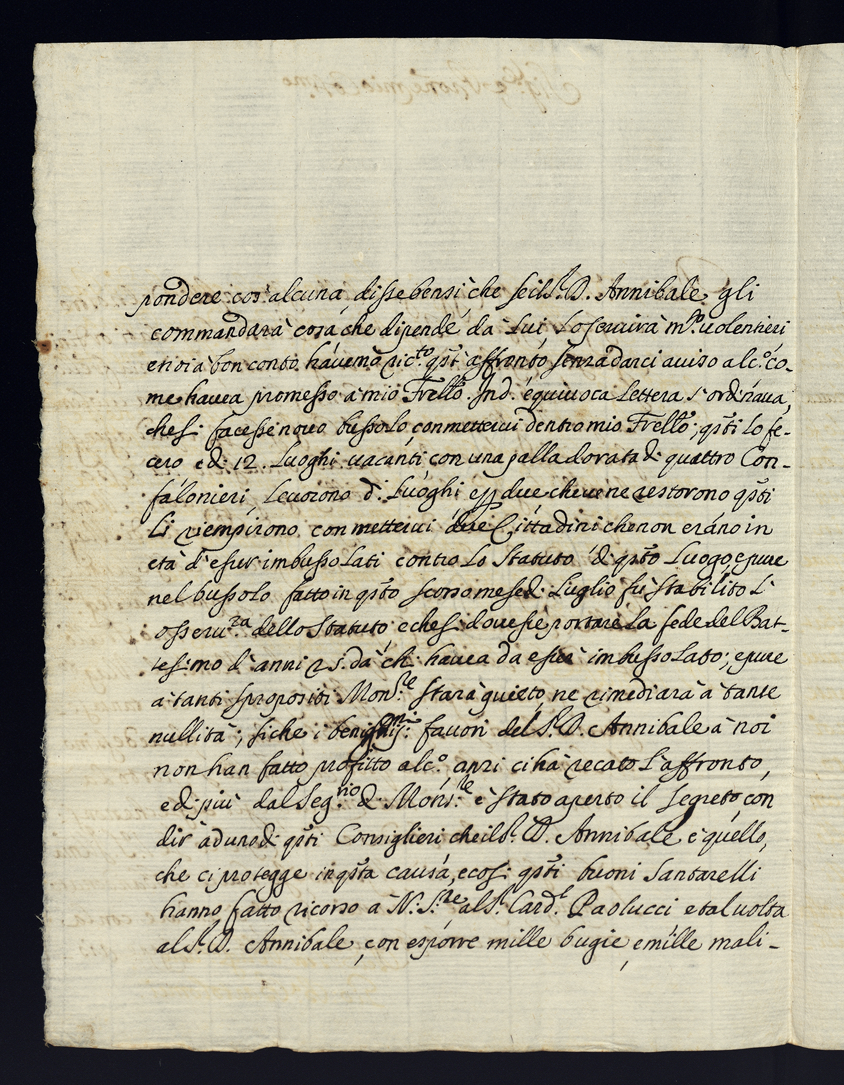 pondere cos' alcuna disse bensì che se il S.r D. Annibale gli
commandarà cosa che dipende da Lui Lo servirà m.to volentieri
e noi a bon conto havemo ric.to q.st' affronto senza darci aviso alc.o co-
me havea promesso a mio Frello. Ind. équivoca Lettera s' ordinava,
che si facesse novo bussolo con mettervi dentro mio Frello; q.sti lo fe-
cero e di 12. Luoghi vacanti con una palla dorata di quattro Con-
falonieri, levorono d. Luoghi e p due che ve ne restorono q.sti
li riempirono con mettervi due Cittadini che non erano in
età d' esser imbussolati contro Lo Statuto di q.sto Luogo, e pure
nel bussolo fatto in q.sto scorso mese di Luglio fu stabilito L'
osserv.za dello Statuto, e che si dovesse portare La fede del Bat-
tesimo d' anni 25. da chi havea da esser imbussolato; e pure
a tanti spropositi Mons.re starà quieto, ne rimediarà a tante
nullita; siche i benig.mi favori del S.r D. Annibale à noi
non han fatto profitto alc.o, anzi ci hà recato L' affronto,
e di più dal Seg.rio di Mons.re è stato aperto il segreto con
dir ad uno di q.sti Consiglieri che il S.r D. Annibale è quello,
che ci protegge in q.sta causa, e così q.sti buoni Santarelli
hanno fatto ricorso à N. S.re al S.r Card.l Paolucci e tal volta
al S.r D. Annibale con esporre mille bugie, e mille mali-